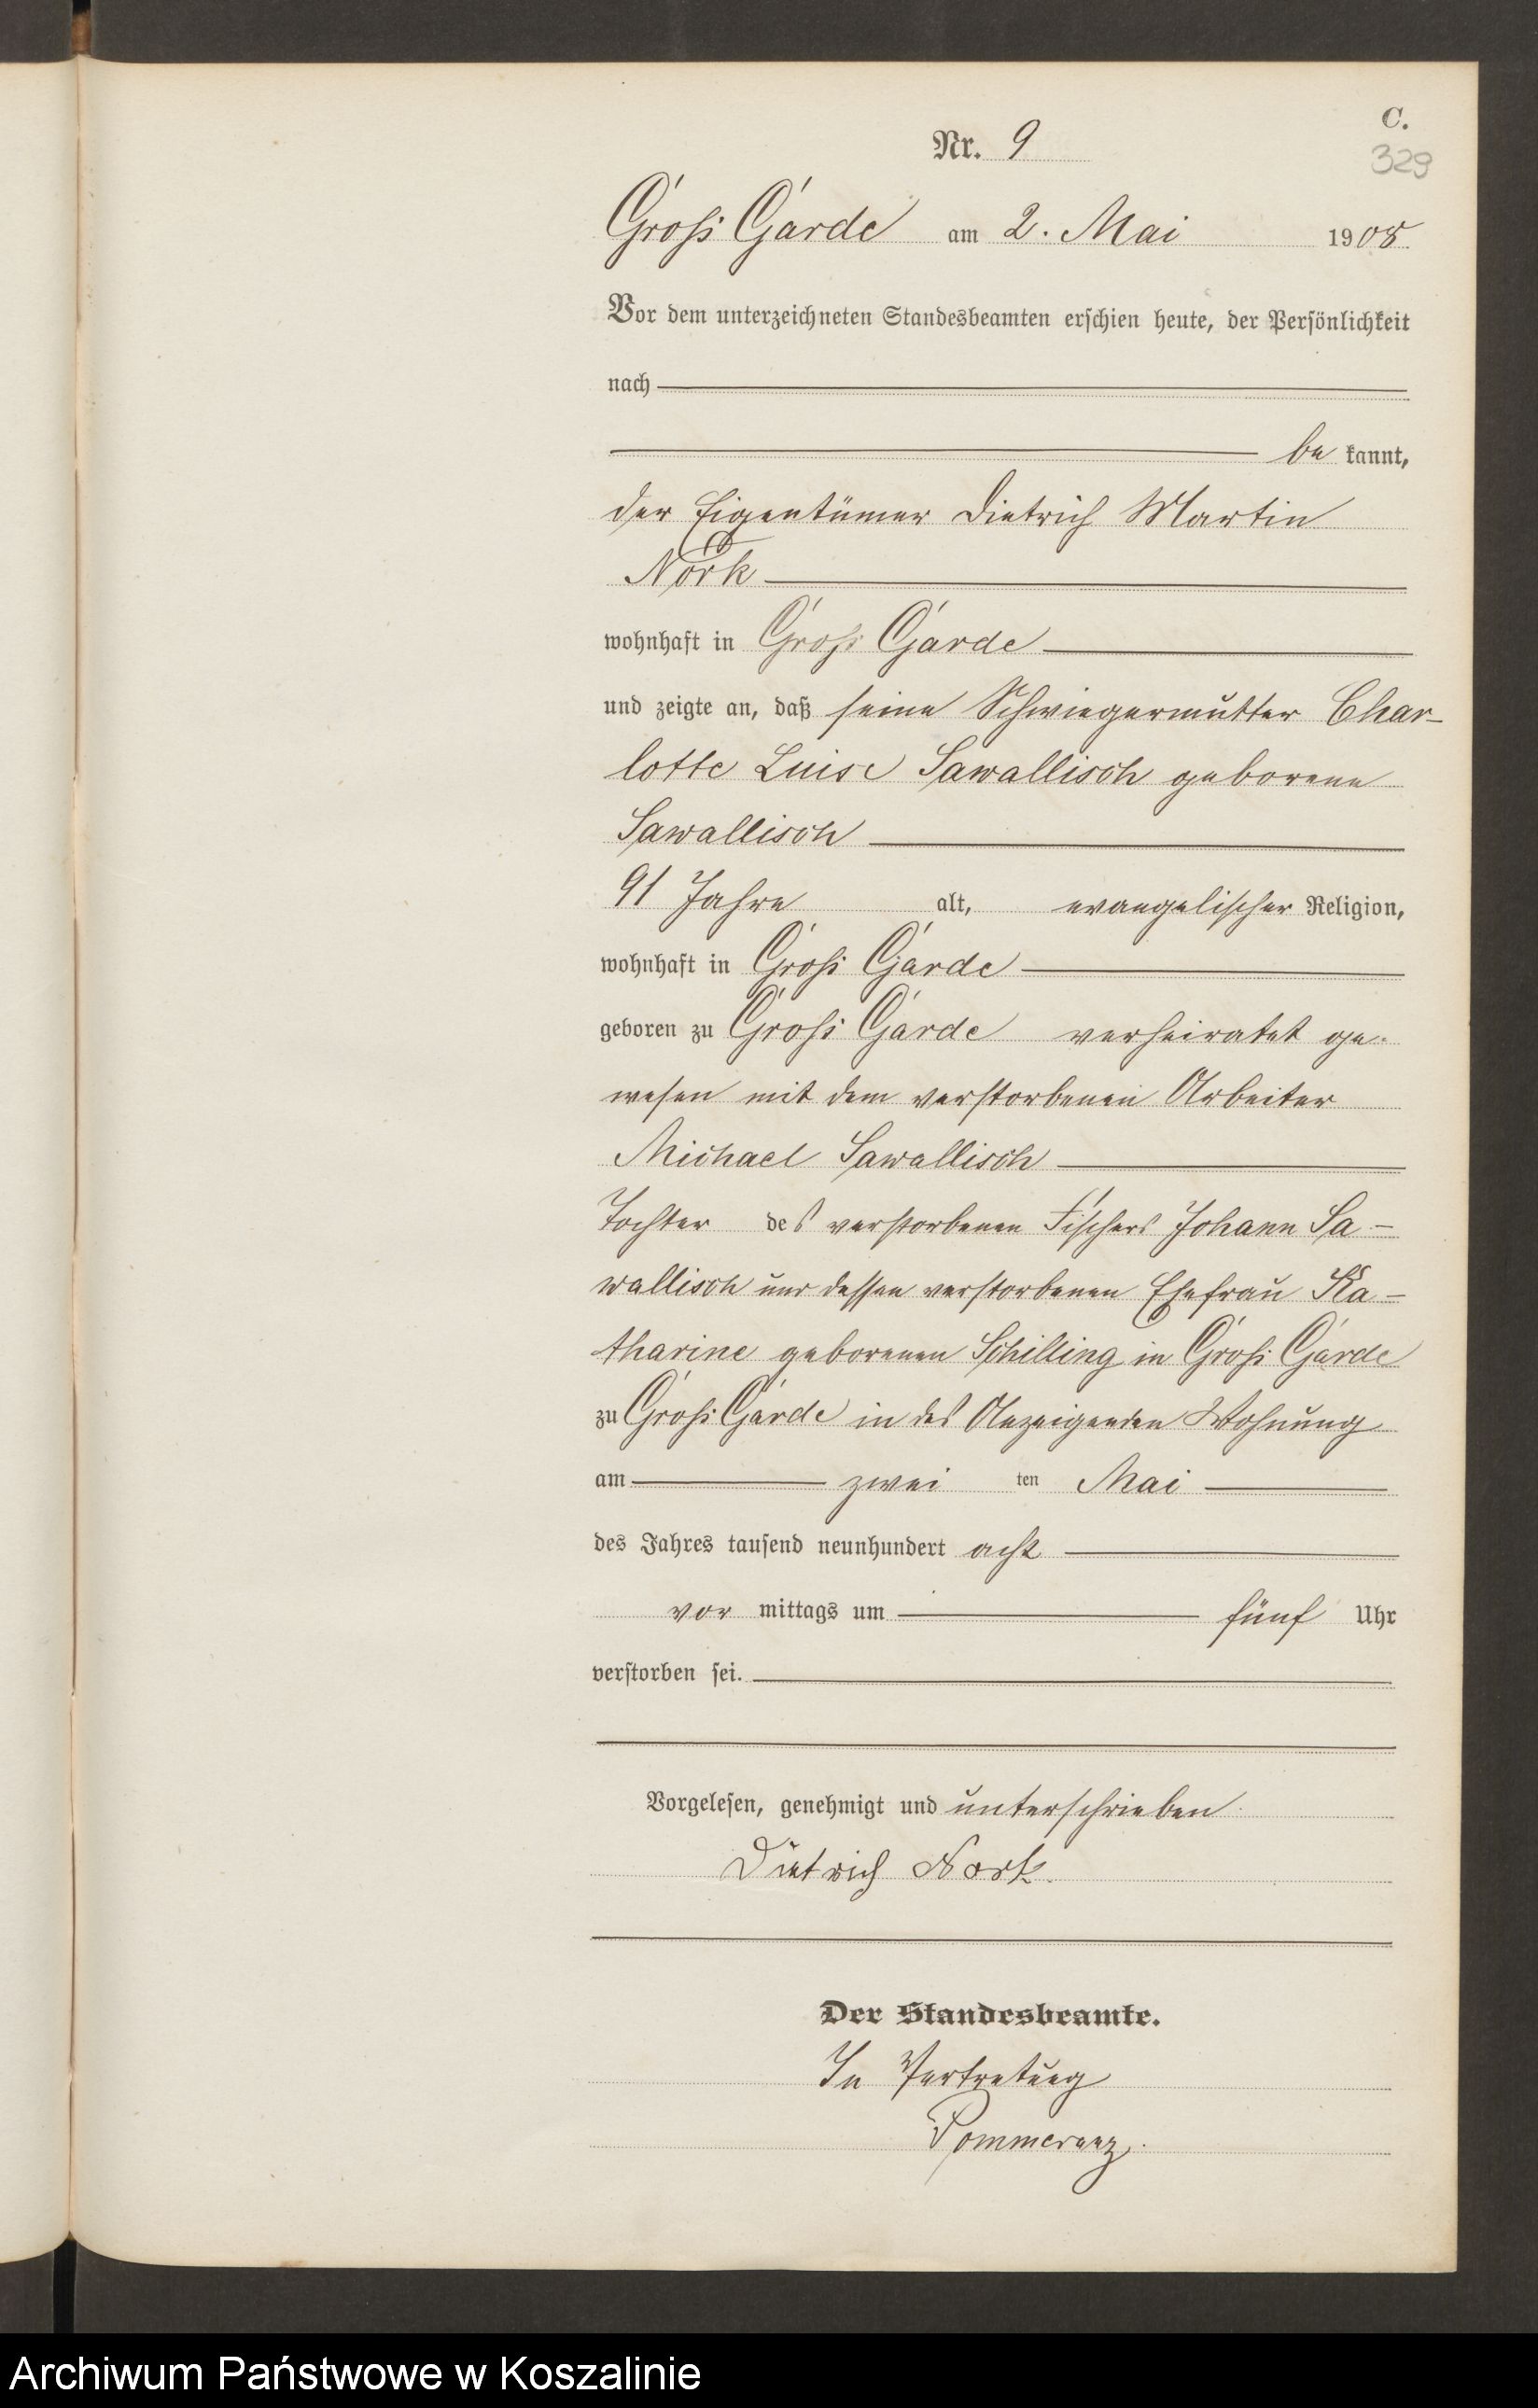 C.
Nr. 9
329
Groß Garde am 2. Mai 1908
Vor dem unterzeichneten Standesbeamten erschien heute, der Persönlichkeit
nach
be kannt,
der Eigentümer Dietrich Martin
Nork
wohnhaft in Groß Garde
und zeigte an, daß seine Schwiegermutter Char-
lotte Luise Sawallisch geborene
Sawallisch
91 Jahre alt, evangelischer Religion,
wohnhaft in Groß Garde
geboren zu Groß Garde verheiratet ge-
wesen mit dem verstorbenen Arbeiter
Michael Sawallisch
Tochter des verstorbenen Fischers Johann Sa-
wallisch und dessen verstorbenen Ehefrau Ka-
tharine geborenen Schilling in Groß Garde
zu Groß Garde in des Anzeigenden Wohnung
am zwei ten Mai
des Jahres tausend neunhundert acht
vor mittags um fünf Uhr
verstorben sei.
Vorgelesen, genehmigt und unterschrieben
Dietrich Nork.
Der Standesbeamte.
In Vertretung
Pommerenz.
Archiwum Państwowe w Koszalinie